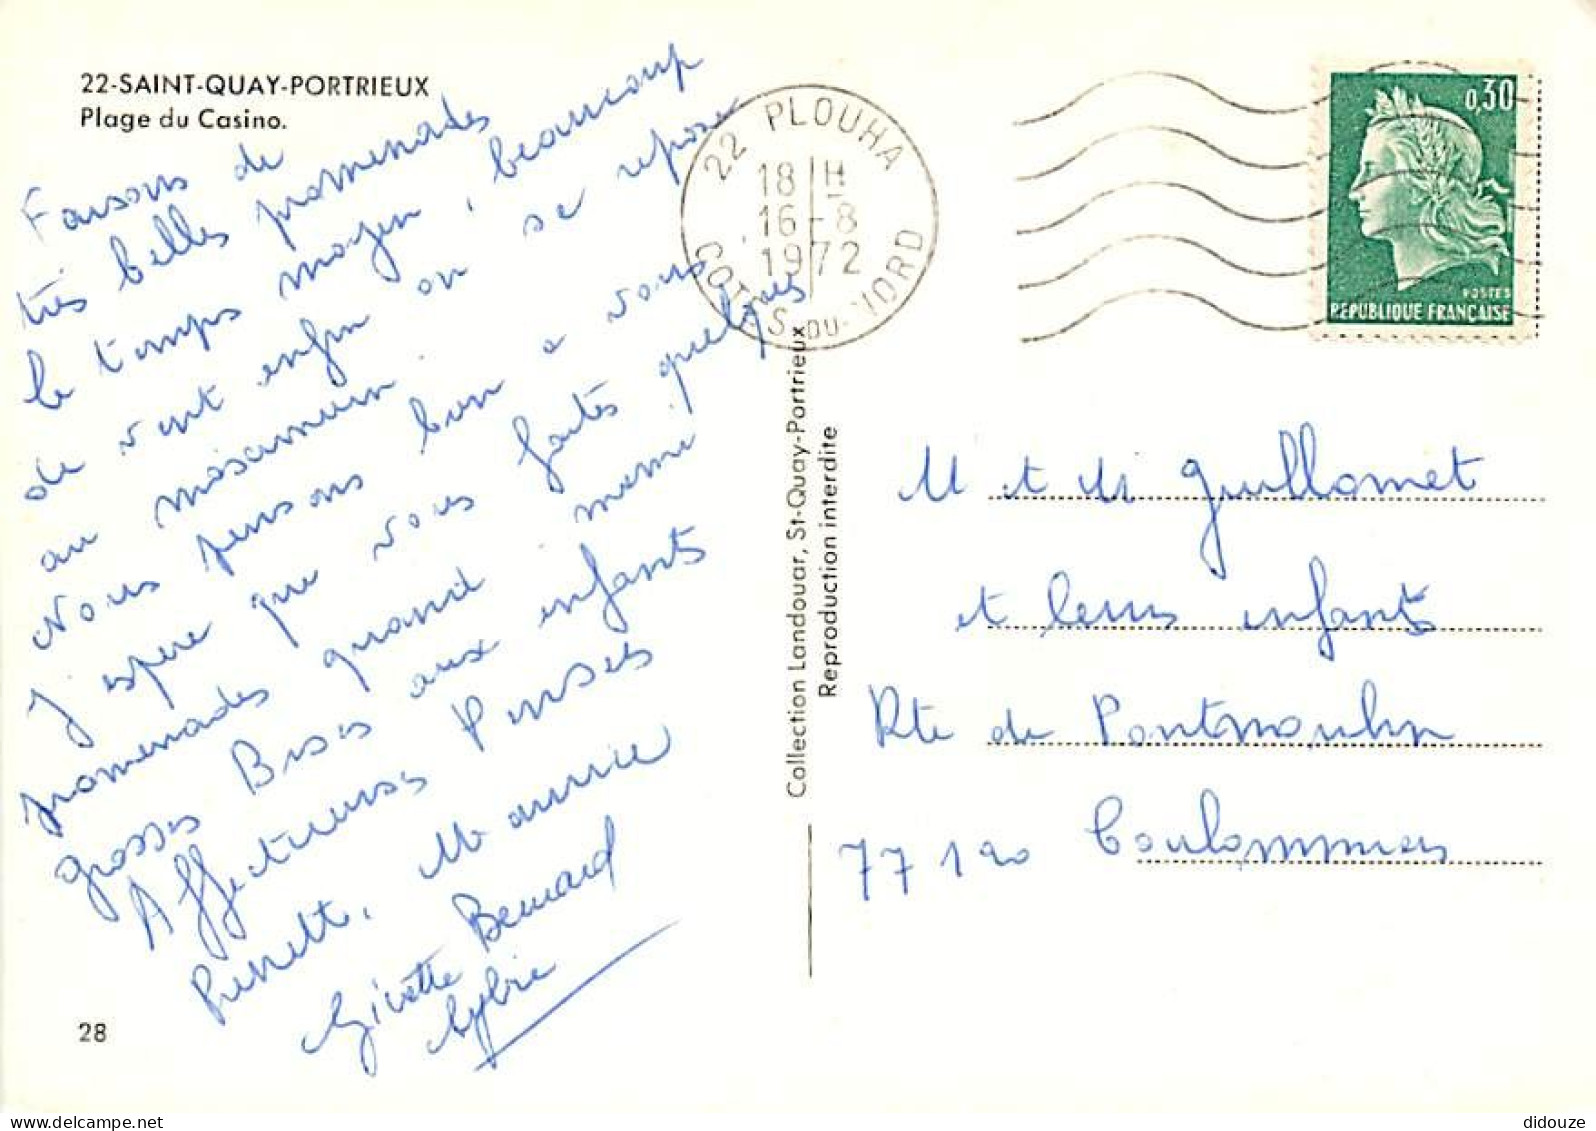 22-SAINT-QUAY-PORTRIEUX
Plage du Casino.
Faisons de
très belles promenades
le temps moyen, beaucoup
de vent enfin on se repose
au maximum.
Nous pensons bien à vous,
j'espère que vous faites quelques
promenades quand même
grosses Bises aux enfants
Affectueuses Pensées
Pierrette, Maurice
Bernard
Sylvie
28
22 PLOUHA
18 H
16-8
1972
COTES-DU-NORD
0,30
POSTES
RÉPUBLIQUE FRANÇAISE
Collection Landouar, St-Quay-Portrieux
Reproduction interdite
M et M Guillomet
et leurs enfants
Rte de Pontmoulin
77120 Coulommiers
delcampe.net
didouze